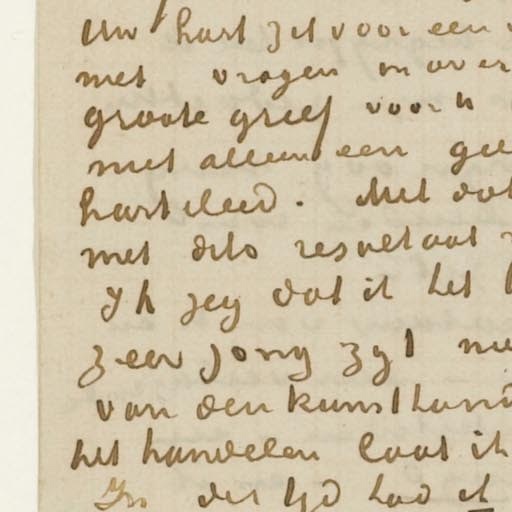 Uw hart zit voor een
met vragen en over
groote grief voor u
niet alleen een
harteleed. Met dat
met dito resultaat
Ik zeg dat ik het
zeer jong zyt
van den kunsthand
het handelen laat ik
In der tyd had ik